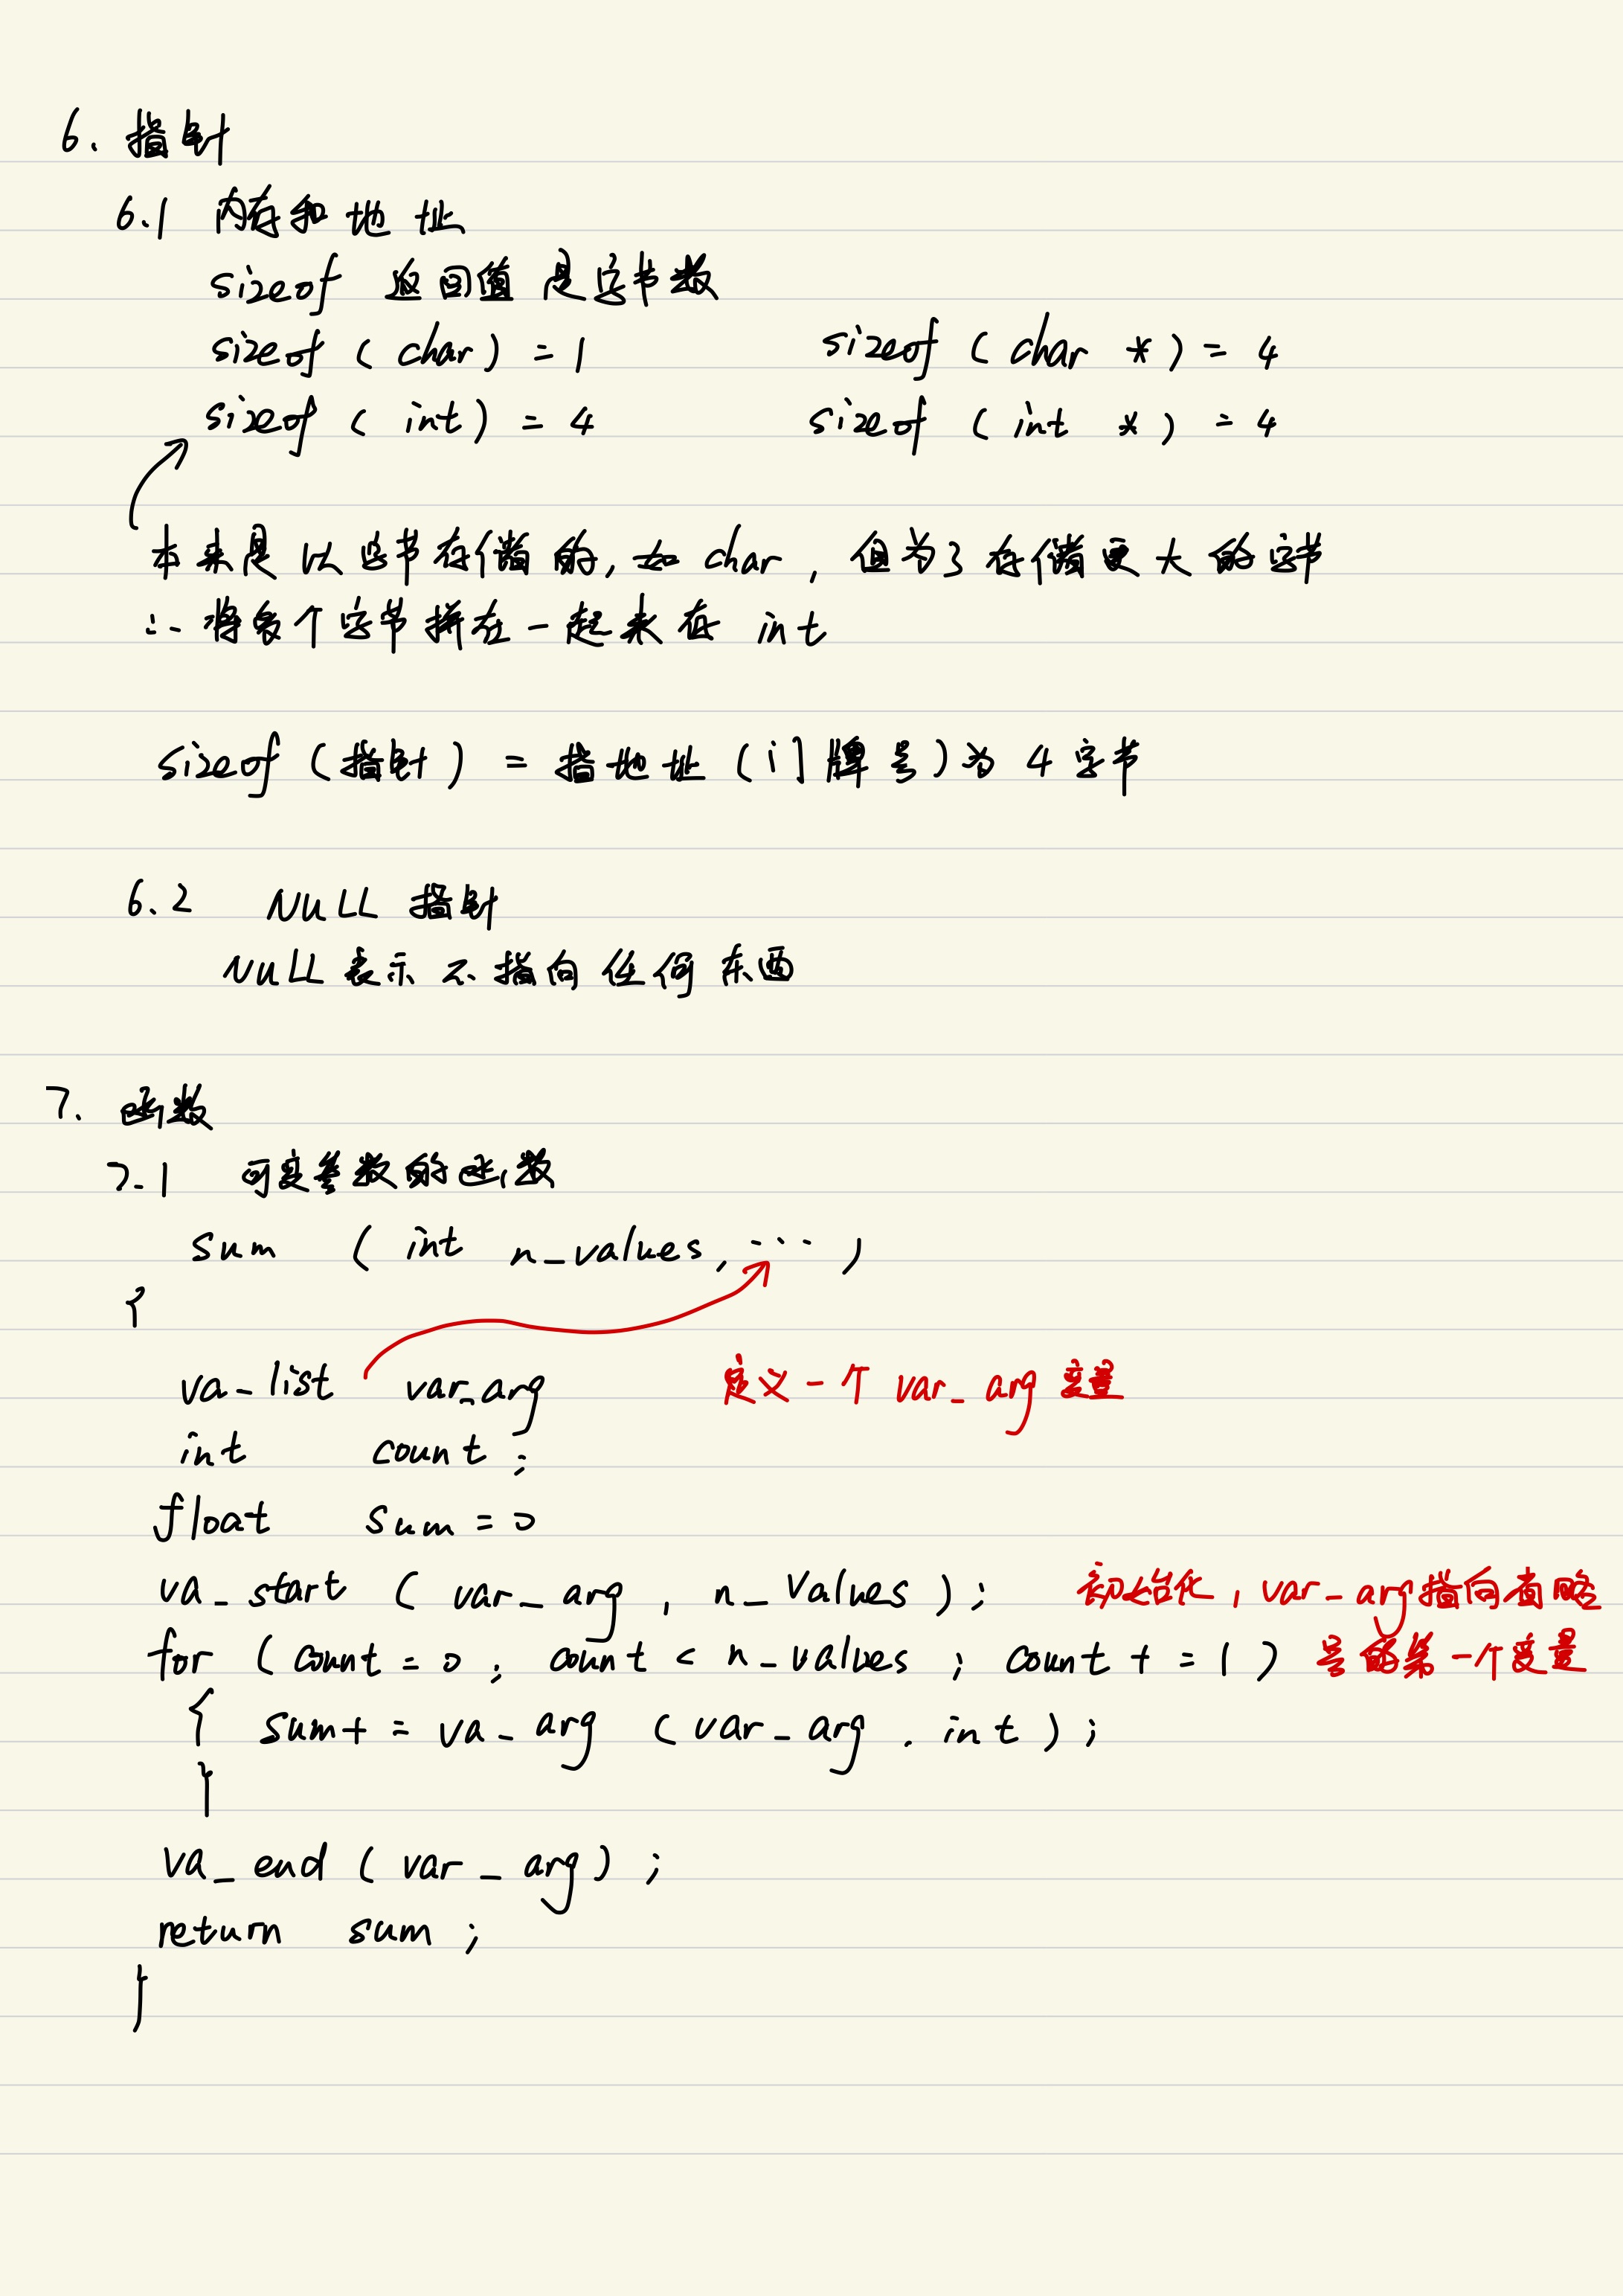 6. 指针
6.1 内存和地址
sizeof 返回值是字节数
sizeof (char) = 1 sizeof (char *) = 4
sizeof (int) = 4 sizeof (int *) = 4
本来是以字节存储的, 如char, 但为了存储更大的字节
∴ 将多个字节拼在一起来存 int
sizeof (指针) = 指地址 (门牌号) 为 4 字节
6.2 NULL 指针
NULL 表示不指向任何东西
7. 函数
7.1 可变参数的函数
sum ( int n_values, ... )
{
va_list var_arg 定义一个 var_arg 变量
int count ;
float sum = 0
va_start ( var_arg , n_values ) ; 初始化, var_arg指向省略
for ( count = 0 ; count < n_values ; count + = 1 ) 号的第一个变量
{ sum + = va_arg ( var_arg . int ) ;
}
va_end ( var_arg ) ;
return sum ;
}